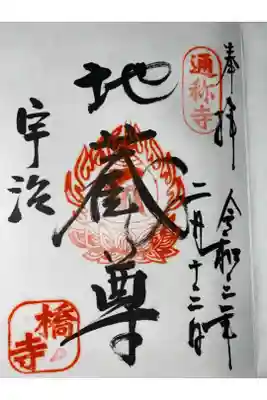 奉拝
通称寺
令和二年
二月十二日
地蔵尊
宇治
橋寺